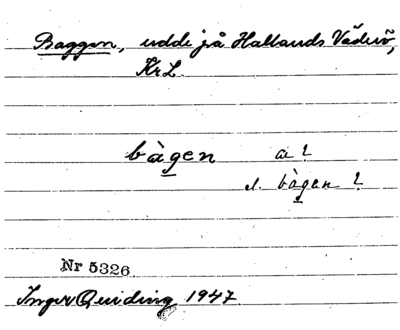 Baggen, udde på Hallands Väderö,
Kr L.
bàgen a?
el. bàgen?
Nr 5326
Inger Quiding 1947.